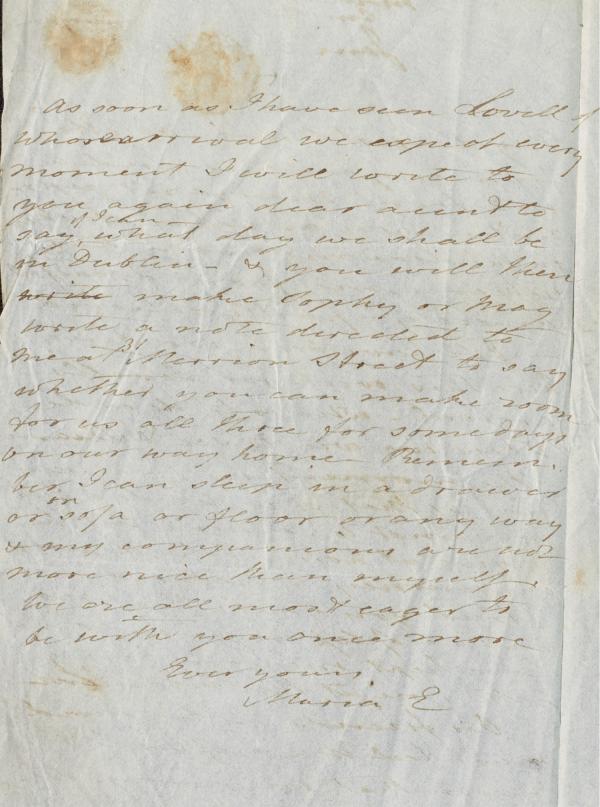 As soon as I have seen Lovell of
whose arrival we expect every
moment I will write to
you again dear aunt to
say, if I can what day we shall be
in Dublin - & you will then
write make Sophy or Mag
write a note directed to
me at 31 Merrion Street to say
whether you can make room
for us all three for some days
on our way home Remem-
ber I can sleep in a drawer
or on sofa or floor or any way
& my companions are not
more nice than myself.
We are all most eager to
be with you once more
Ever yours
Maria E